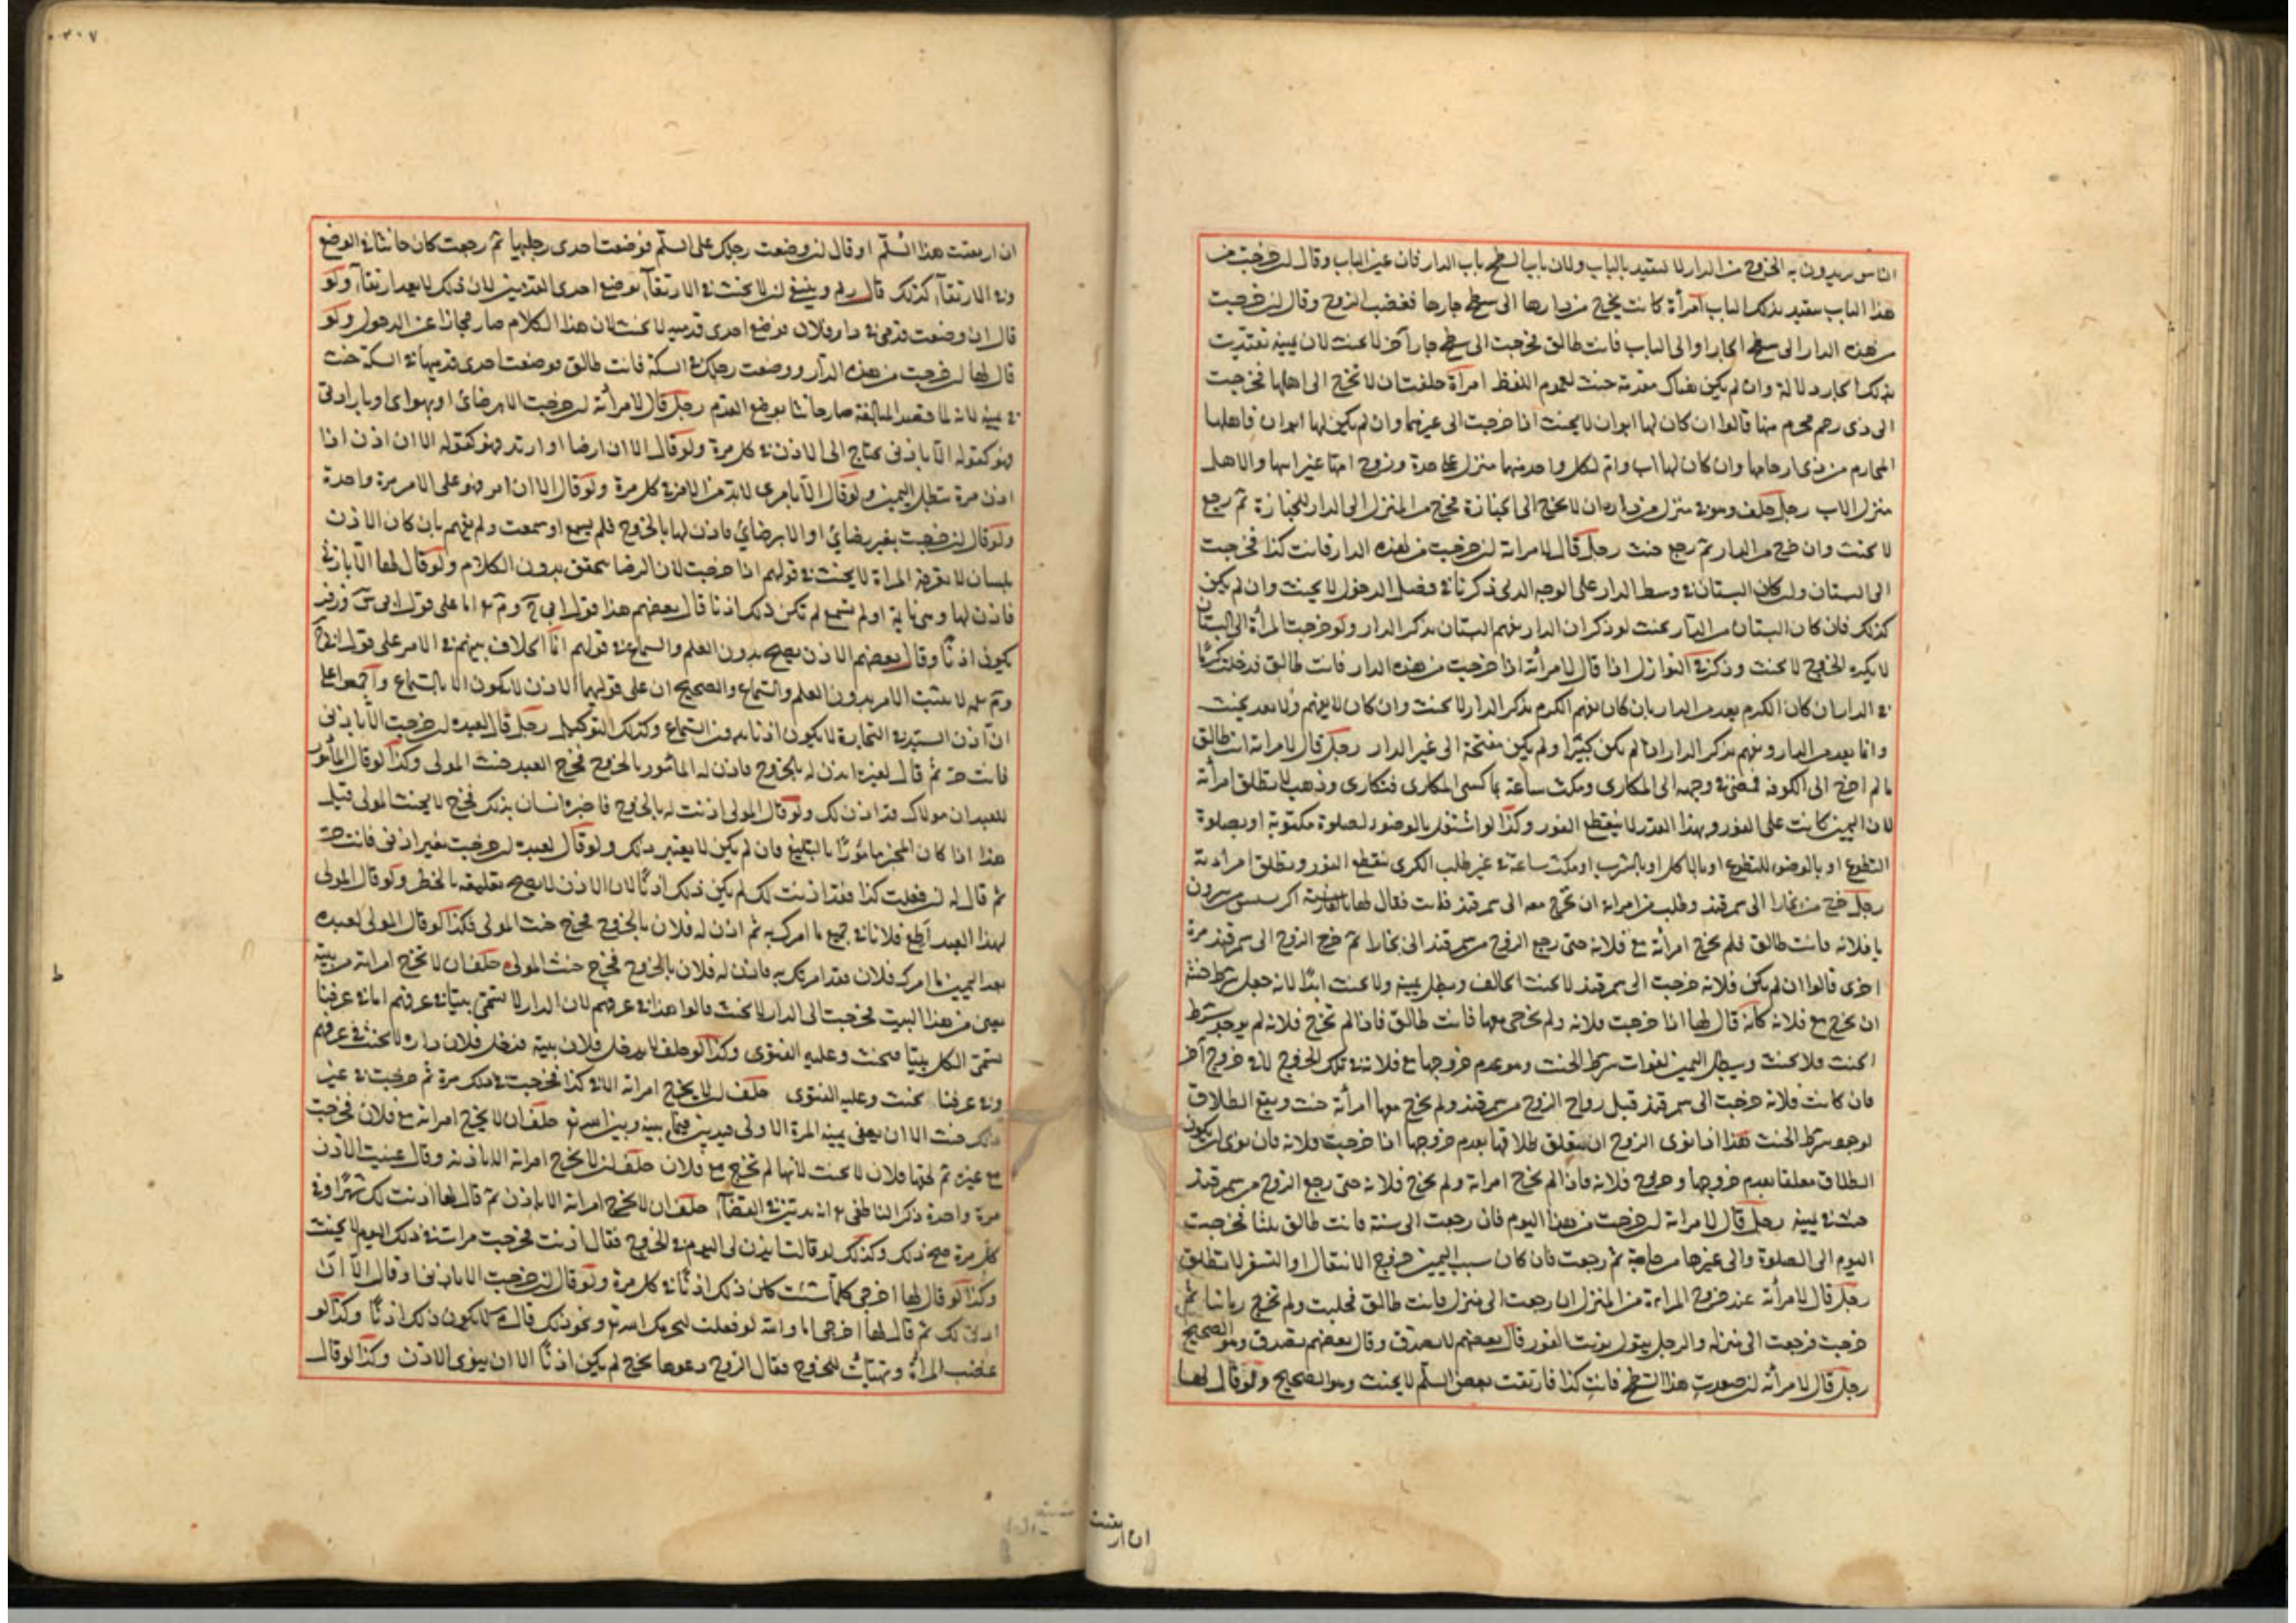 الناس يريدون به الخروج من الدار لا يتقيد بالباب ولان باب السطح باب الدار فان عين الباب وقال ان خرجت من
هذا الباب يتقيد بذلك الباب امرأة كانت تخرج من دارها الى سطح جارها فغضب الزوج وقال ان خرجت
من هذه الدار الى سطح الجار او الى الباب فانت طالق فخرجت الى سطح جار آخر لا يحنث لان يمينه تقيدت
بذلك الجار دلالة وان لم يكن هناك مقدمة حنث لعموم اللفظ امرأة حلفت ان لا تخرج الى اهلها فخرجت
الى ذى رحم محرم منها قالوا ان كان لها ابوان لا يحنث اذا خرجت الى غيرهما وان لم يكن لها ابوان فاهلها
المحارم من ذى ارحامها وان كان لها اب وام لكل واحد منهما منزل على حدة وزوج امها غير ابيها والاهل
منزل الاب رجل حلف وهو فى منزل من دار ان لا يخرج الى الجنازة فخرج من المنزل الى الدار للجنازة ثم رجع
لا يحنث وان خرج من الدار ثم رجع حنث رجل قال لامراته ان خرجت من هذه الدار فانت كذا فخرجت
الى البستان ان كان البستان فى وسط الدار على الوجه الذى ذكرنا فى فصل الدخول لا يحنث وان لم يكن
كذلك فان كان البستان من الدار يحنث لو ذكر ان الدار يفهم البستان بذكر الدار ولو خرجت المرأة الى البستان
لا يكره الخروج لا يحنث وذكر فى النوازل اذا قال لامرأته اذا خرجت من هذه الدار فانت طالق فدخلت كرما
فى الدار ان كان الكرم يعد من الدار بان كان يفهم الكرم بذكر الدار لا يحنث وان كان لا يفهم ولا يعد يحنث
وانما يعد من الدار ويفهم بذكر الدار اذا لم يكن كبيرا ولم يكن مفتحه الى غير الدار رجل قال لامراته انت طالق
ما لم اخرج الى الكوفة فمضى فى وجهه الى المكارى ومكث ساعة يماكس المكارى فتكارى وذهب لا تطلق امرأته
لان اليمين كانت على الفور وبهذا القدر لا ينقطع الفور وكذا لو اشتغل بالوضوء لصلوة مكتوبة او بصلوة
التطوع او بالوضوء للتطوع او بالاكل او بالشرب او مكث ساعة فى غير طلب الكرى ينقطع الفور وتطلق امراته
رجل خرج من بخارا الى سمرقند وطلب من امراته ان تخرج معه الى سمرقند فابت فقال لها بالفارسية اكر
يا فلانه فانت طالق فلم تخرج امرأته مع فلانة حتى رجع الزوج من سمرقند الى بخارا ثم خرج الزوج الى سمرقند مرة
اخرى قالوا ان لم يكن فلانة خرجت الى سمرقند لا يحنث الحالف ويبطل يمينه ولا يحنث ابدا لانه جعل شرط حنثه
ان تخرج مع فلانة كانه قال لها اذا خرجت فلانه ولم تخرجى معها فانت طالق فاذا لم تخرج فلانه لم يوجد شرط
الحنث فلا يحنث ويبطل اليمين لفوات شرط الحنث وهو عدم خروجها مع فلانة فى تلك الخروج لانه خروج آخر
فان كانت فلانة خرجت الى سمرقند قبل رواح الزوج من سمرقند ولم تخرج معها امرأته حنث ويقع الطلاق
لوجود شرط الحنث هذا اذا نوى الزوج ان يتعلق طلاقها بعدم خروجها اذا خرجت فلانة فان نوى ان يكون
الطلاق معلقا بعدم خروجها وخروج فلانه فاذا لم تخرج امراته ولم تخرج فلانه حتى رجع الزوج من سمرقند
حنث فى يمينه رجل قال لامراته ان خرجت من هذا اليوم فان رجعت الى سنة فانت طالق ثلثا فخرجت
اليوم الى الصلوة والى غيرها من حاجة ثم رجعت فان كان سبب اليمين خروج الانتقال او السفر لا تطلق
رجل قال لامرأته عند خروج المراءة من المنزل ان رجعت الى منزل فانت طالق فجلست ولم تخرج زمانا ثم
خرجت فرجعت الى منزله والرجل يقول نويت الفور قال بعضهم لا يصدق وقال بعضهم يصدق وهو الصحيح
رجل قال لامرأته ان صعدت هذا السطح فانت كذا فارتقت بعض السلم لا يحنث وهو الصحيح ولو قال لها
ان ارتقت
ان ارتقيت هذا السلم او قال ان وضعت رجلك على السلم فوضعت احدى رجليها ثم رجعت كان حانثا فى الوضع
وفى الارتقاء كذلك قال رضى وينبغى ان لا يحنث فى الارتقاء بوضع احدى القدمين لان ذلك لا يعد ارتقاء ولو
قال ان وضعت قدمى فى دار فلان فوضع احدى قدميه لا يحنث لان هذا الكلام صار مجازا عن الدخول ولو
قال لها ان خرجت من هذه الدار ووضعت رجلك فى السكة فانت طالق فوضعت احدى قدميها فى السكة حنث
فى يمينه لانه لما قصد المبالغة صار حانثا بوضع القدم رجل قال لامرأته ان خرجت الا برضائى او بهواى او بارادتى
فهو كقوله الا باذنى يحتاج الى الاذن فى كل مرة ولو قال الا ان ارضا او اريد فهو كقوله الا ان اذن اذا
اذن مرة تبطل اليمين ولو قال الا بامرى لا بد من الامر فى كل مرة ولو قال الا ان امر فهو على الامر مرة واحدة
ولو قال ان خرجت بغير رضائى او الا برضائى فاذن لها بالخروج فلم يسمع او سمعت ولم تفهم بان كان الاذن
بلسان لا تعرفه المراة لا يحنث فى قولهم اذا خرجت لان الرضا يتحقق بدون الكلام ولو قال لها الا باذنى
فاذن لها وهى نائمة او لم تسمع لم تكن ذلك اذنا قال بعضهم هذا قول ابى ح وم رح اما على قول ابى س وزفر
يكون اذنا وقال بعضهم الاذن يصح بدون العلم والسماع فى قولهم انما الخلاف بينهم فى الامر على قول ابى ح
وم رحمه لا يثبت الامر بدون العلم والسماع والصحيح ان على قولهما الاذن لا يكون الا بالسماع واجمعوا على
ان اذن السيد فى التجارة لا يكون اذنا بدون السماع وكذلك التوكيل رجل قال لعبده ان خرجت الا باذنى
فانت حر ثم قال لغيره ائذن له بالخروج فاذن له المامور بالخروج فخرج العبد حنث المولى وكذا لو قال المأمور
للعبد ان مولاك قد اذن لك ولو قال المولى اذنت له بالخروج فاخبره انسان بذلك فخرج لا يحنث المولى قيل
هذا اذا كان المخبر مامورا بالتبليغ فان لم يكن لا يعتبر ذلك ولو قال لعبده ان خرجت بغير اذنى فانت حر
ثم قال له ان فعلت كذا فقد اذنت لك لم يكن ذلك اذنا لان الاذن لا يصح تعليقه بالخطر ولو قال المولى
لهذا العبد اطع فلانا فى جميع ما امرك به ثم اذن له فلان بالخروج فخرج حنث المولى فكذا لو قال المولى لعبده
بعد اليمين ما امرك فلان فقد امرتك به فاذن له فلان بالخروج فخرج حنث المولى حلف ان لا تخرج امراته من بيته
يعنى من هذا البيت فخرجت الى الدار لا يحنث قالوا هذا فى عرفهم لان الدار لا تسمى بيتا فى عرفهم اما فى عرفنا
تسمى الكل بيتا فيحنث وعليه الفتوى وكذا لو حلف لا يدخل فلان بيته فدخل فلان داره لا يحنث فى عرفهم
وفى عرفنا يحنث وعليه الفتوى حلف ان لا يخرج امراته الا فى كذا فخرجت فى ذلك مرة ثم خرجت فى غير
ذلك حنث الا ان يعنى يمينه المرة الاولى فيدين فيما بينه وبين الله تع حلف ان لا يخرج امراته مع فلان فخرجت
مع غيره ثم لحقها فلان لا يحنث لانها لم تخرج مع فلان حلف ان لا يخرج امراته الا باذنه وقال عنيت الاذن
مرة واحدة ذكر الناطفى رح انه يدين فى القضاء حلف ان لا تخرج امراته الا باذن ثم قال لها اذنت لك شهرا وفى
كل مرة صح ذلك وكذلك لو قالت ايذن لى اليوم فى الخروج فقال اذنت فخرجت مرات فى ذلك اليوم لا يحنث
وكذا لو قال لها اخرجى كلما شئت كان ذلك اذنا فى كل مرة ولو قال ان خرجت الا باذنى او قال الا ان
اذن لك ثم قال لها اخرجى اما والله لو فعلت ليخزيك الله تع ونحو ذلك قال م لا يكون ذلك اذنا وكذا لو
غضبت المرأة وتهيأت للخروج فقال الزوج دعوها تخرج لم يكن اذنا الا ان ينوى الاذن وكذا لو قال